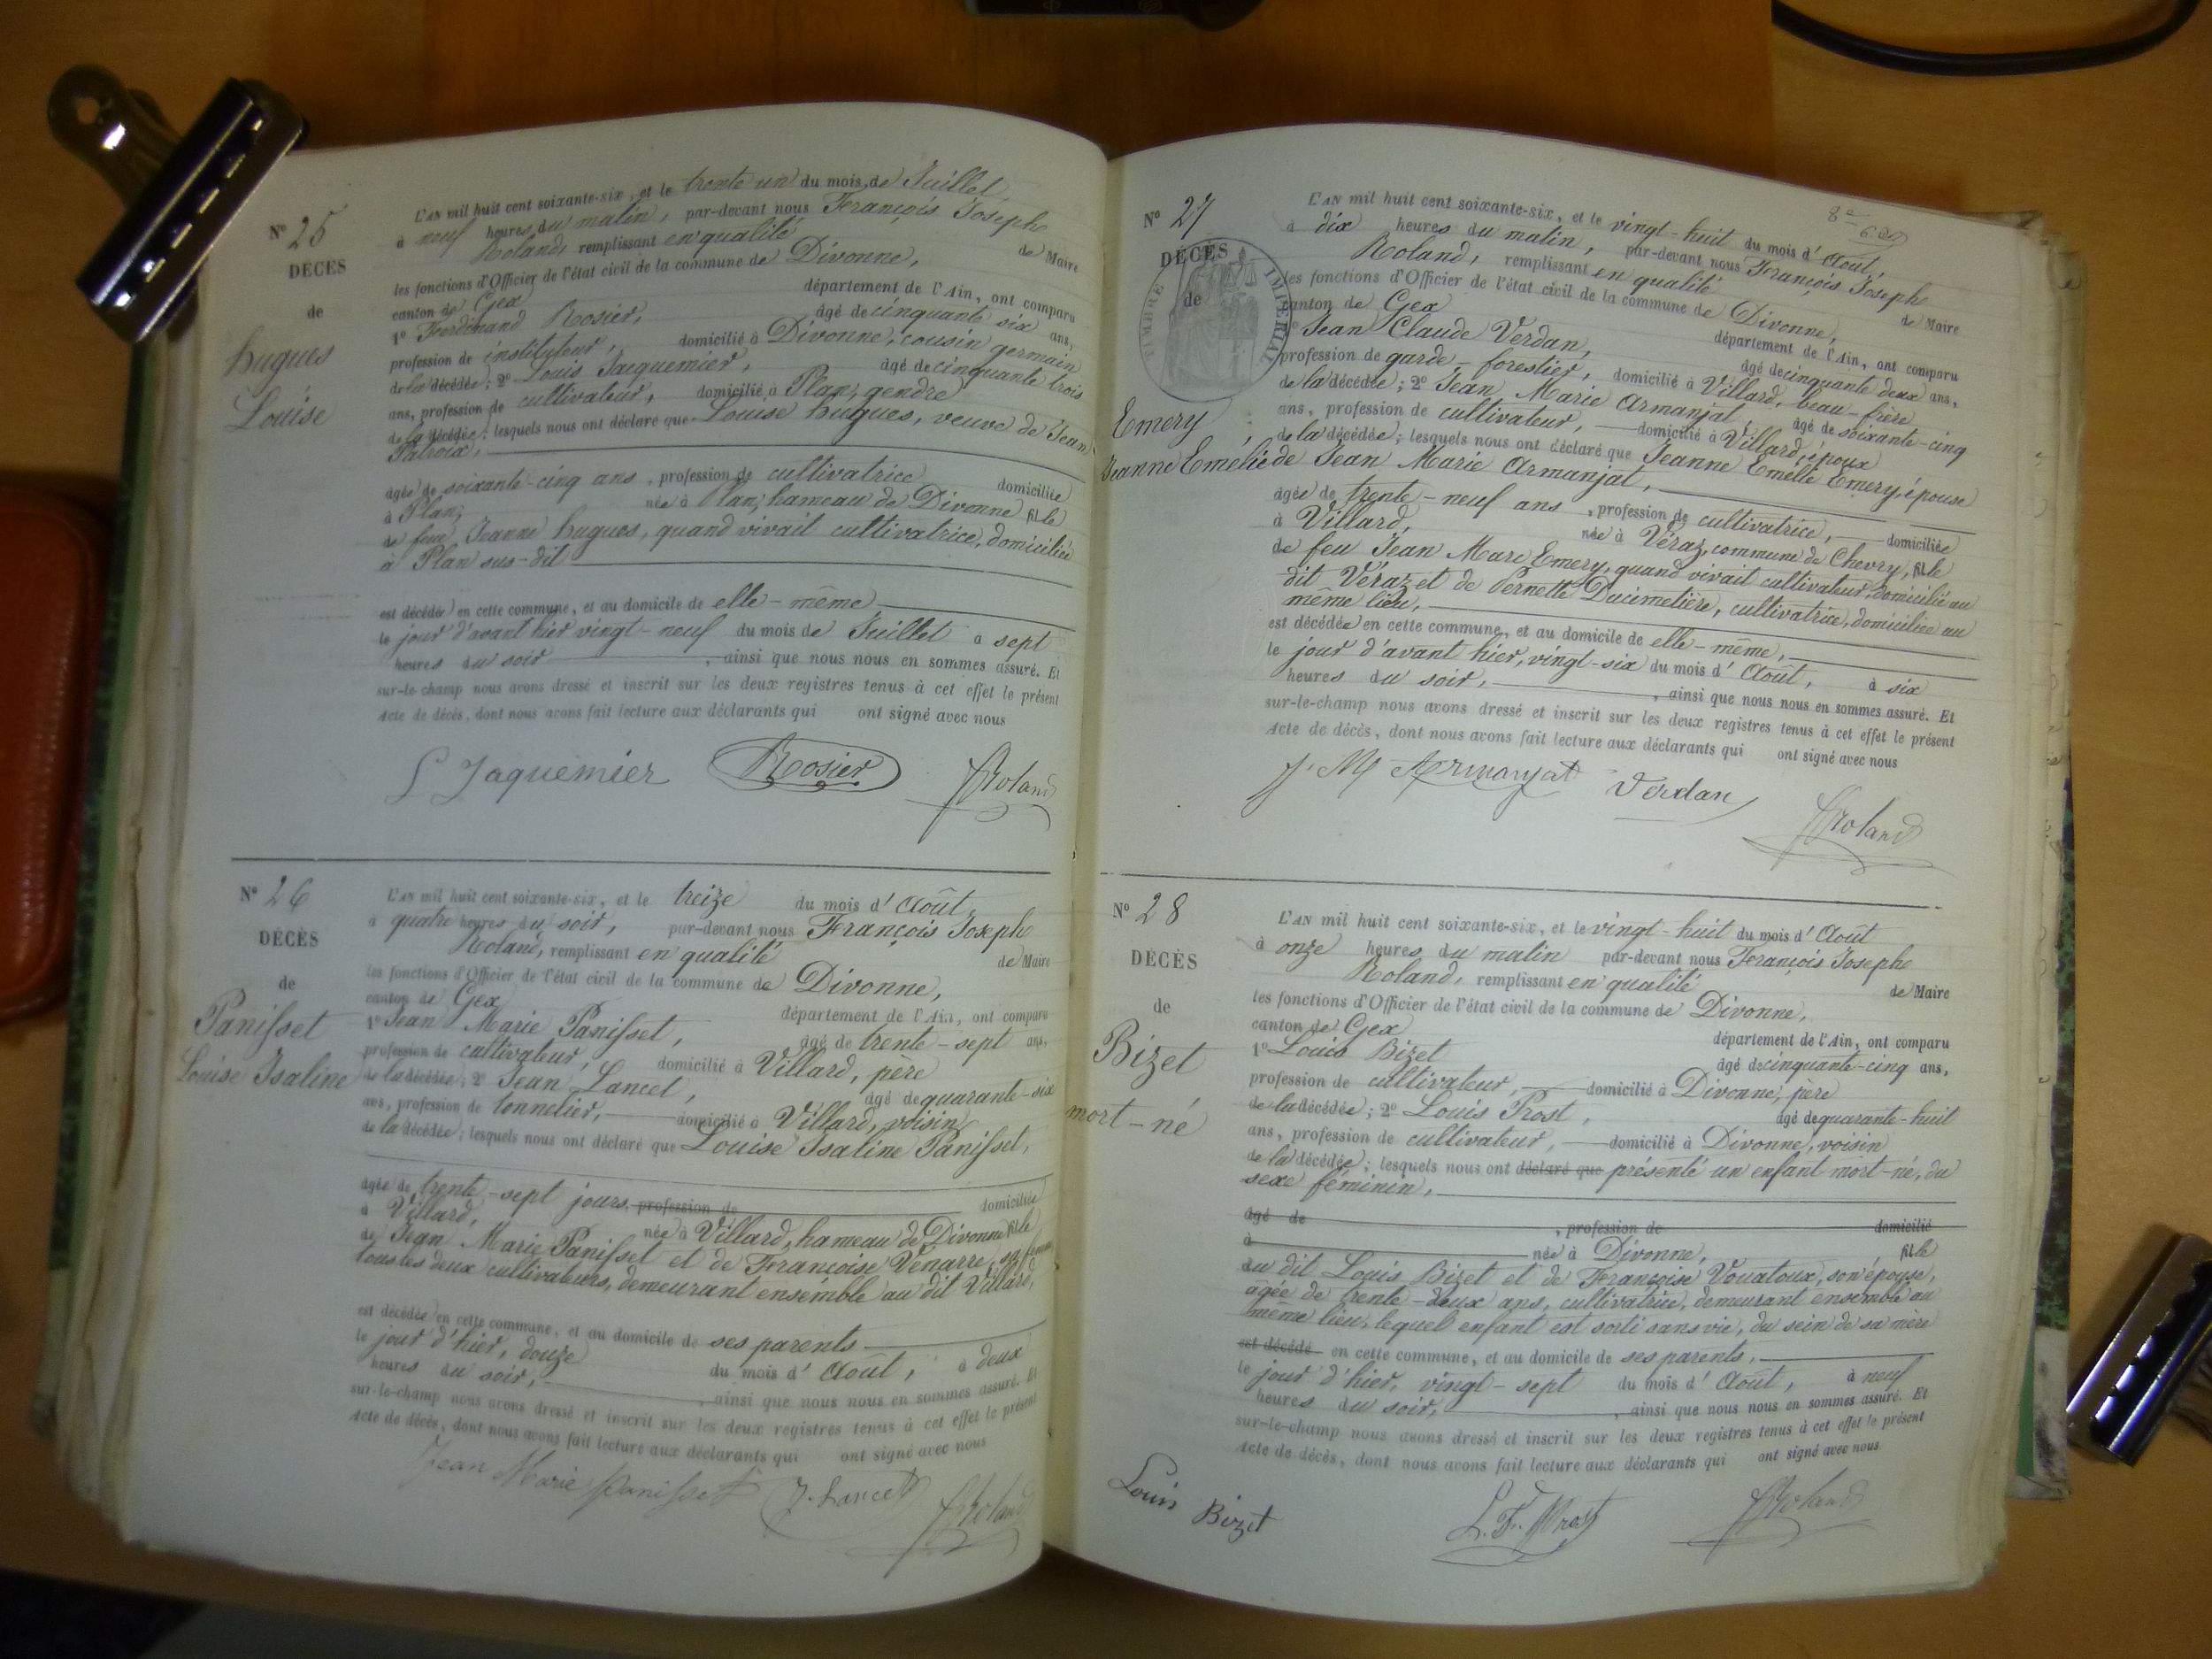 N° 25
DÉCÈS
de
hugues
Louise
L'AN mil huit cent soixante-six, et le trente un du mois de Juillet
à neuf heures du matin, par-devant nous François Joseph
Roland, remplissant en qualité de Maire
les fonctions d'Officier de l'état civil de la commune de Divonne,
canton de Gex département de l'Ain, ont comparu
1° Ferdinand Rosier, âgé de cinquante six ans,
profession de instituteur, domicilié à Divonne, cousin germain
de la décédée; 2° Louis Jacquemier, âgé de cinquante trois
ans, profession de cultivateur, domicilié à Plan, gendre
de la décédée; lesquels nous ont déclaré que Louise hugues, veuve de Jean
Patroix,
âgée de soixante-cinq ans, profession de cultivatrice domiciliée
à Plan, née à Plan, hameau de Divonne fille
de feue Jeanne hugues, quand vivait cultivatrice, domiciliée
à Plan sus-dit
est décédée en cette commune, et au domicile de elle-même
le jour d'avant hier vingt-neuf du mois de Juillet à sept
heures du soir, ainsi que nous nous en sommes assuré. Et
sur-le-champ nous avons dressé et inscrit sur les deux registres tenus à cet effet le présent
Acte de décès, dont nous avons fait lecture aux déclarants qui ont signé avec nous
Jaquemier Rosier Roland
N° 26
DÉCÈS
de
Panisset
Louise Isaline
L'AN mil huit cent soixante-six, et le treize du mois d'Août,
à quatre heures du soir, par-devant nous François Joseph
Roland, remplissant en qualité de Maire
les fonctions d'Officier de l'état civil de la commune de Divonne,
canton de Gex département de l'Ain, ont comparu
1° Jean Marie Panisset, âgé de trente-sept ans,
profession de cultivateur, domicilié à Villard, père
de la décédée; 2° Jean Lancet, âgé de quarante-six
ans, profession de tonnelier, domicilié à Villard, voisin
de la décédée; lesquels nous ont déclaré que Louise Isaline Panisset,
âgée de trente-sept jours profession de domiciliée
à Villard, née à Villard, hameau de Divonne fille
de Jean Marie Panisset et de Françoise Venarre, sa femme
tous les deux cultivateurs, demeurant ensemble au dit Villard,
est décédée en cette commune, et au domicile de ses parents
le jour d'hier, douze du mois d'Août, à deux
heures du soir, ainsi que nous nous en sommes assuré. Et
sur-le-champ nous avons dressé et inscrit sur les deux registres tenus à cet effet le présent
Acte de décès, dont nous avons fait lecture aux déclarants qui ont signé avec nous
Jean Marie Panisset J. Lancet Roland
N° 27
DÉCÈS
de
TIMBRE IMPÉRIAL
Emery
Jeanne Emélie
L'AN mil huit cent soixante-six, et le vingt-huit du mois d'Août,
à dix heures du matin, par-devant nous François Joseph
Roland, remplissant en qualité de Maire
les fonctions d'Officier de l'état civil de la commune de Divonne,
canton de Gex département de l'Ain, ont comparu
1° Jean Claude Verdan, âgé de cinquante deux ans,
profession de garde-forestier, domicilié à Villard, beau-frère
de la décédée; 2° Jean Marie Armanjat, âgé de soixante-cinq
ans, profession de cultivateur, domicilié à Villard, époux
de la décédée; lesquels nous ont déclaré que Jeanne Emélie Emery, épouse
de Jean Marie Armanjat,
âgée de trente-neuf ans, profession de cultivatrice, domiciliée
à Villard, née à Véraz, commune de Chevry, fille
de feu Jean Marc Emery, quand vivait cultivateur, domicilié au
dit Véraz et de Pernette Ducimetière, cultivatrice, domiciliée au
même lieu,
est décédée en cette commune, et au domicile de elle-même,
le jour d'avant hier, vingt-six du mois d'Août, à six
heures du soir, ainsi que nous nous en sommes assuré. Et
sur-le-champ nous avons dressé et inscrit sur les deux registres tenus à cet effet le présent
Acte de décès, dont nous avons fait lecture aux déclarants qui ont signé avec nous
J. M Armanjat Verdan Roland
N° 28
DÉCÈS
de
Bizet
mort-né
L'AN mil huit cent soixante-six, et le vingt-huit du mois d'Août
à onze heures du matin par-devant nous François Joseph
Roland, remplissant en qualité de Maire
les fonctions d'Officier de l'état civil de la commune de Divonne,
canton de Gex département de l'Ain, ont comparu
1° Louis Bizet âgé de cinquante-cinq ans,
profession de cultivateur, domicilié à Divonne, père
de la décédée; 2° Louis Prost, âgé de quarante-huit
ans, profession de cultivateur, domicilié à Divonne, voisin
de la décédée; lesquels nous ont déclaré que présenté un enfant mort-né, du
sexe féminin,
âgé de , profession de domicilié
à née à Divonne, fille
du dit Louis Bizet et de Françoise Vouatoux, son épouse,
âgée de trente-deux ans, cultivatrice, demeurant ensemble au
même lieu, lequel enfant est sorti sans vie, du sein de sa mère
est décédé en cette commune, et au domicile de ses parents,
le jour d'hier, vingt-sept du mois d'Août, à neuf
heures du soir, ainsi que nous nous en sommes assuré. Et
sur-le-champ nous avons dressé et inscrit sur les deux registres tenus à cet effet le présent
Acte de décès, dont nous avons fait lecture aux déclarants qui ont signé avec nous
Louis Bizet L. F. Prost Roland